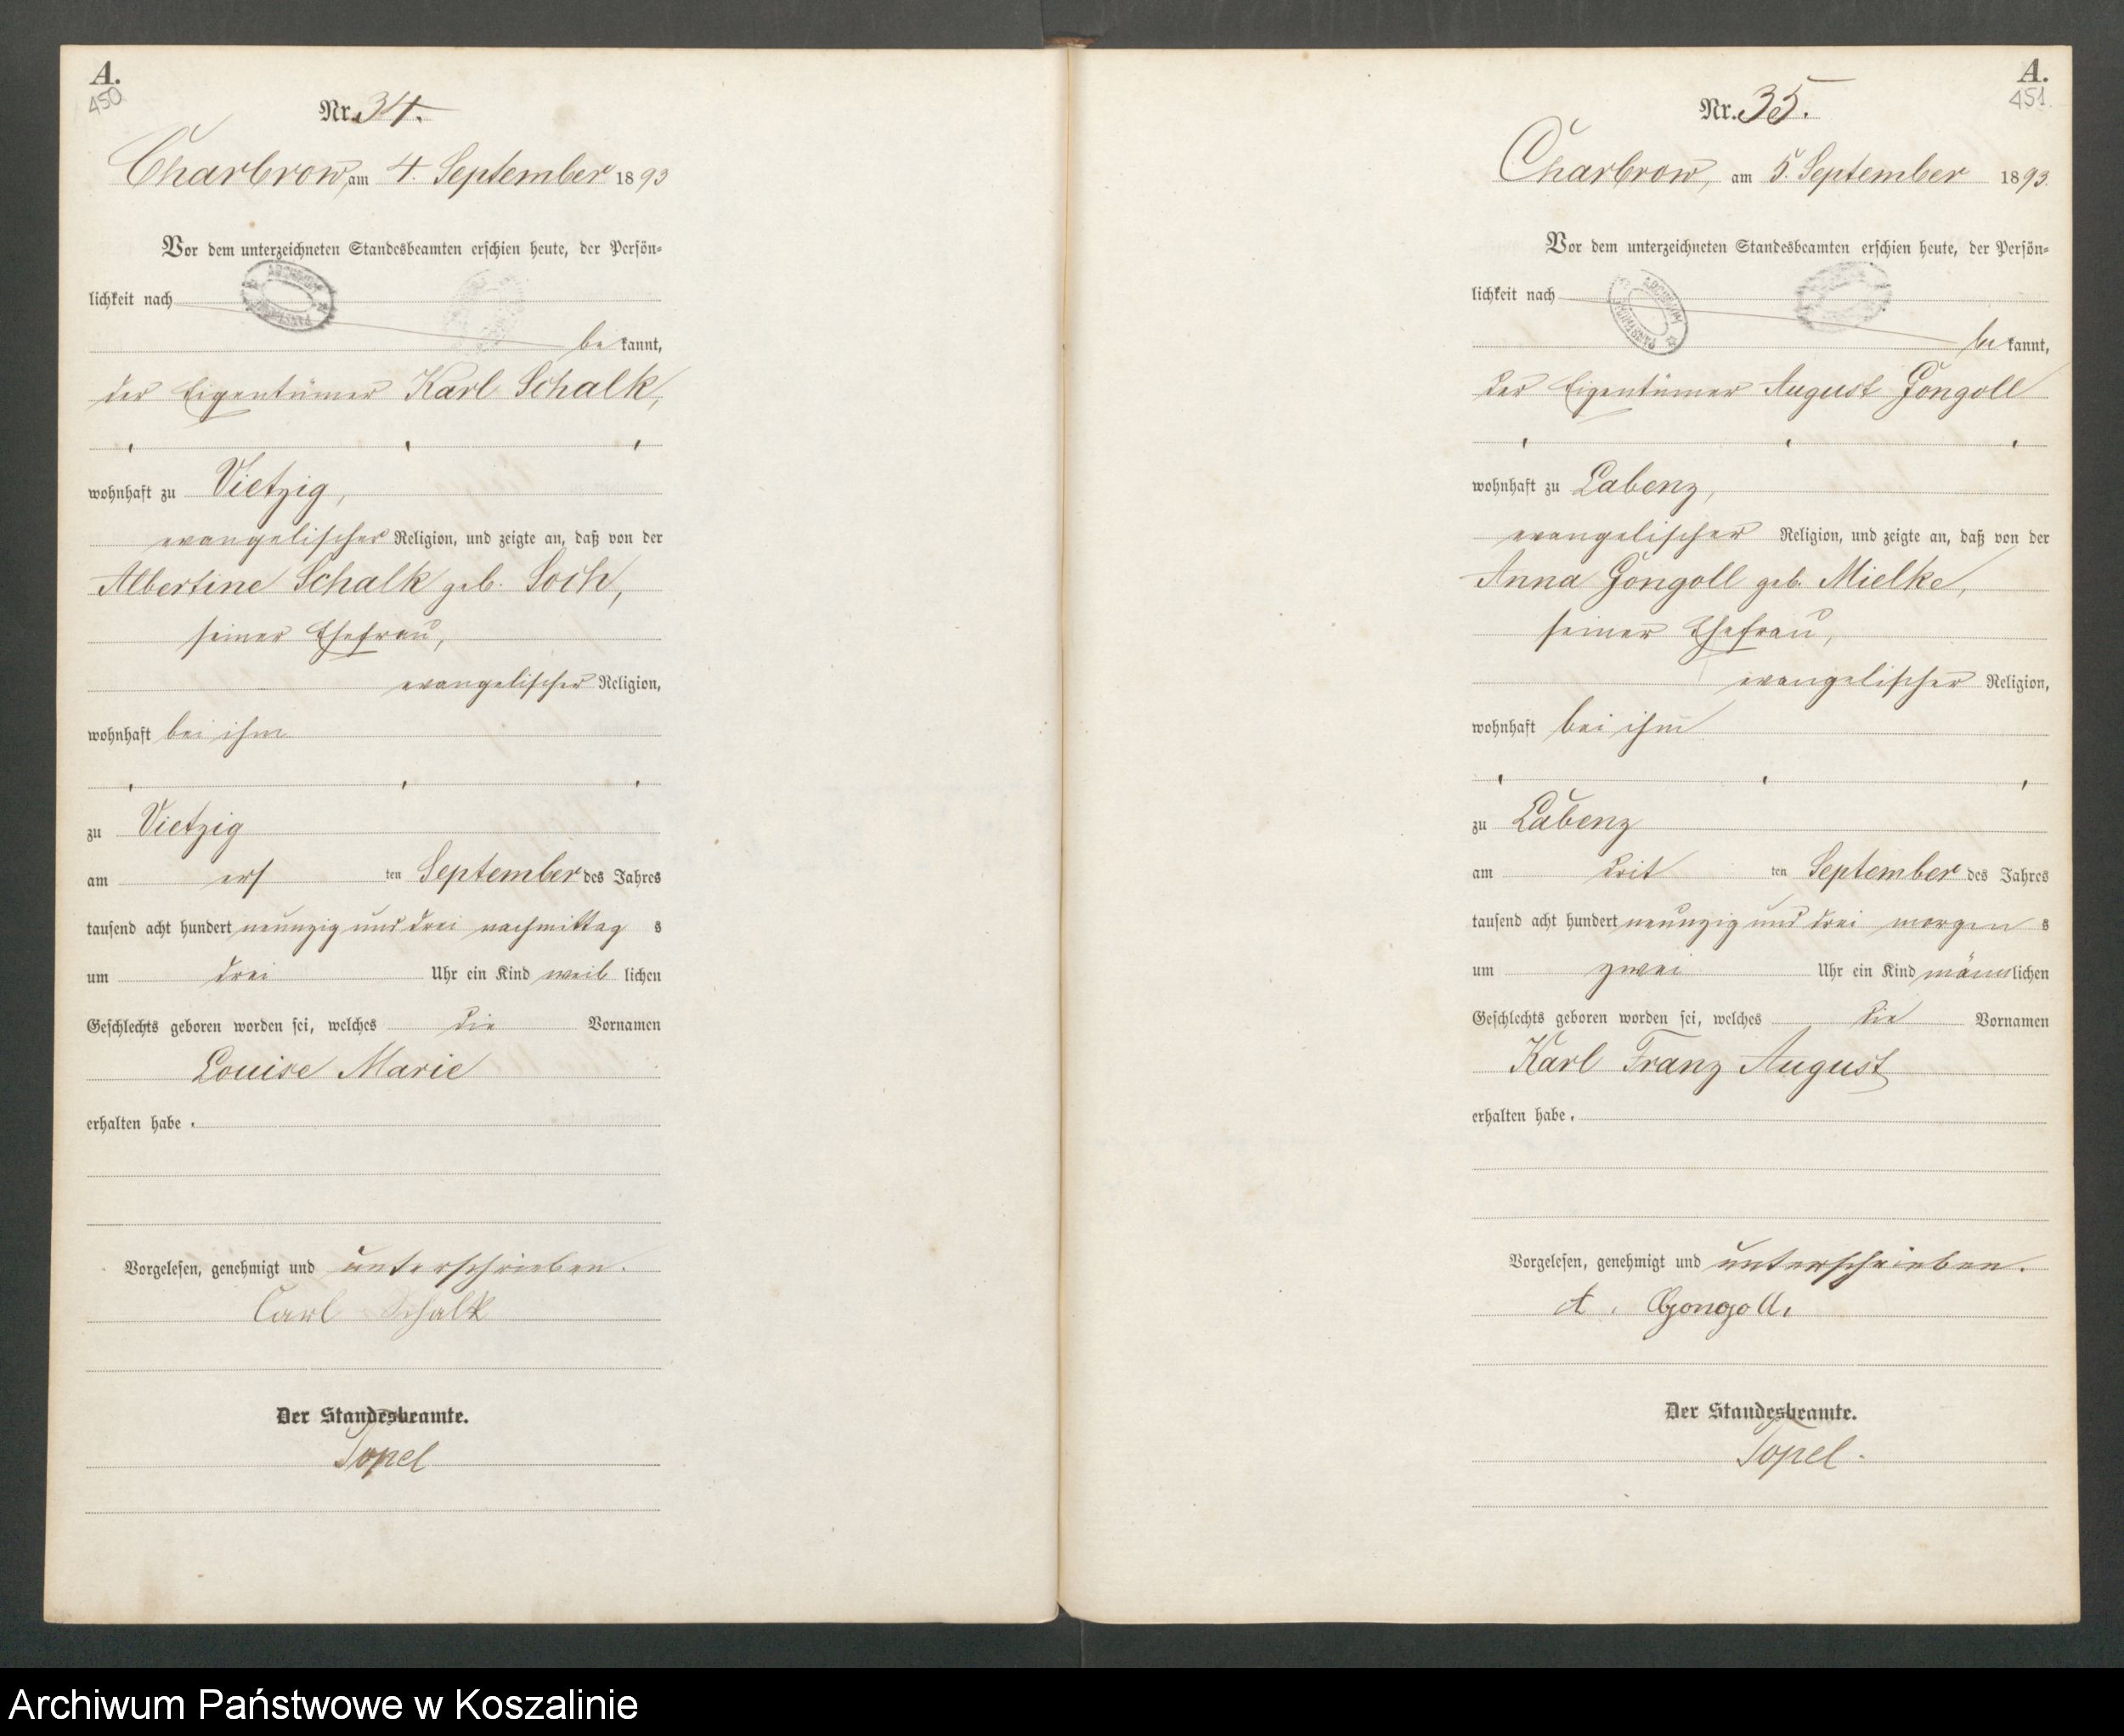 A.
450
Nr. 34.
Charbrow, am 4. September 1893
Vor dem unterzeichneten Standesbeamten erschien heute, der Persön-
lichkeit nach
bekannt,
der Eigentümer Karl Schalk,
wohnhaft zu Vietzig,
evangelischer Religion, und zeigte an, daß von der
Albertine Schalk geb. Soch,
seiner Ehefrau,
evangelischer Religion,
wohnhaft bei ihm
zu Vietzig
am ersten September des Jahres
tausend acht hundert neunzig und drei nachmittags
um drei Uhr ein Kind weiblichen
Geschlechts geboren worden sei, welches die Vornamen
Louise Marie
erhalten habe.
Vorgelesen, genehmigt und unterschrieben.
Carl Schalk
Der Standesbeamte.
Topel
A.
451
Nr. 35.
Charbrow, am 5. September 1893.
Vor dem unterzeichneten Standesbeamten erschien heute, der Persön-
lichkeit nach
bekannt,
der Eigentümer August Gongoll
wohnhaft zu Labenz,
evangelischer Religion, und zeigte an, daß von der
Anna Gongoll geb. Mielke,
seiner Ehefrau,
evangelischer Religion,
wohnhaft bei ihm
zu Labenz
am dritten September des Jahres
tausend acht hundert neunzig und drei morgens
um zwei Uhr ein Kind männlichen
Geschlechts geboren worden sei, welches die Vornamen
Karl Franz August
erhalten habe.
Vorgelesen, genehmigt und unterschrieben.
A. Gongoll.
Der Standesbeamte.
Topel.
Archiwum Państwowe w Koszalinie